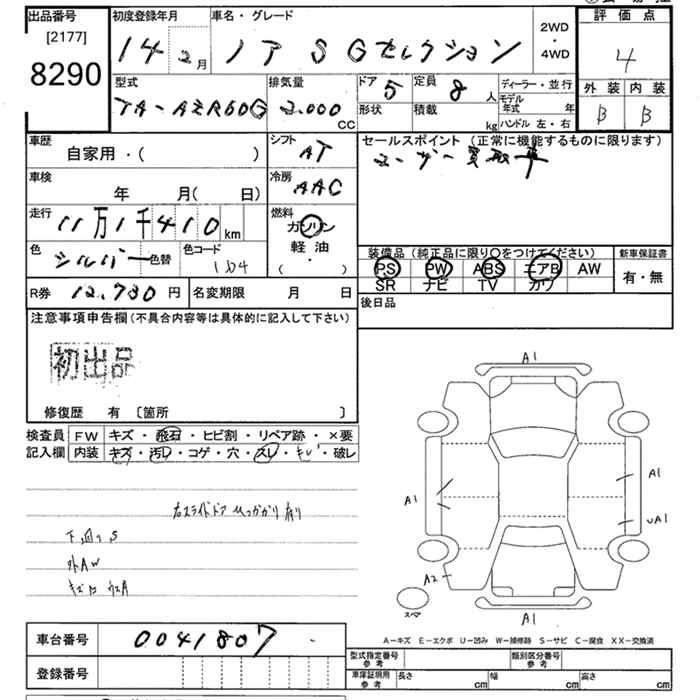 出品番号 初度登録年月 車名・グレード 評価点
[2177]
8290
14 2月 ノア S Gセレクション 2WD・4WD 4
外装 内装
B B
型式 排気量 ドア 定員 ディーラー・並行
TA-AZR60G 2.000 CC 5 8人 モデル年式 年
形状 積載 kg ハンドル 左・右
車歴 シフト セールスポイント (正常に機能するものに限ります)
自家用・( ) AT ユーザー買取車
車検 冷房
年 月( 日) AAC
走行 燃料
11万1千410km ガソリン
軽油
・
( )
色 シルバー 色替 色コード 1D4
装備品 (純正品に限り○をつけてください) 新車保証書
PS PW ABS エアB AW 有・無
SR ナビ TV カワ
R券 12.730円 名変期限 月 日 後日品
注意事項申告欄 (不具合内容等は具体的に記入して下さい)
初出品
修復歴 有 〔箇所 〕
検査員 FW キズ・飛石・ヒビ割・リペア跡・×要
記入欄 内装 キズ・汚レ・コゲ・穴・スレ・ ・破レ
右スライドドア ひっかかり有り
下回りS
外AW
A1
A1
A1
UA1
A2
A1
スペア
A-キズ E-エクボ U-凹み W-補修跡 S-サビ C-腐食 XX-交換済
車台番号 0041807
登録番号
型式指定番号 参考 類別区分番号 参考
車庫証明用 参考 長さ cm 幅 cm 高さ cm